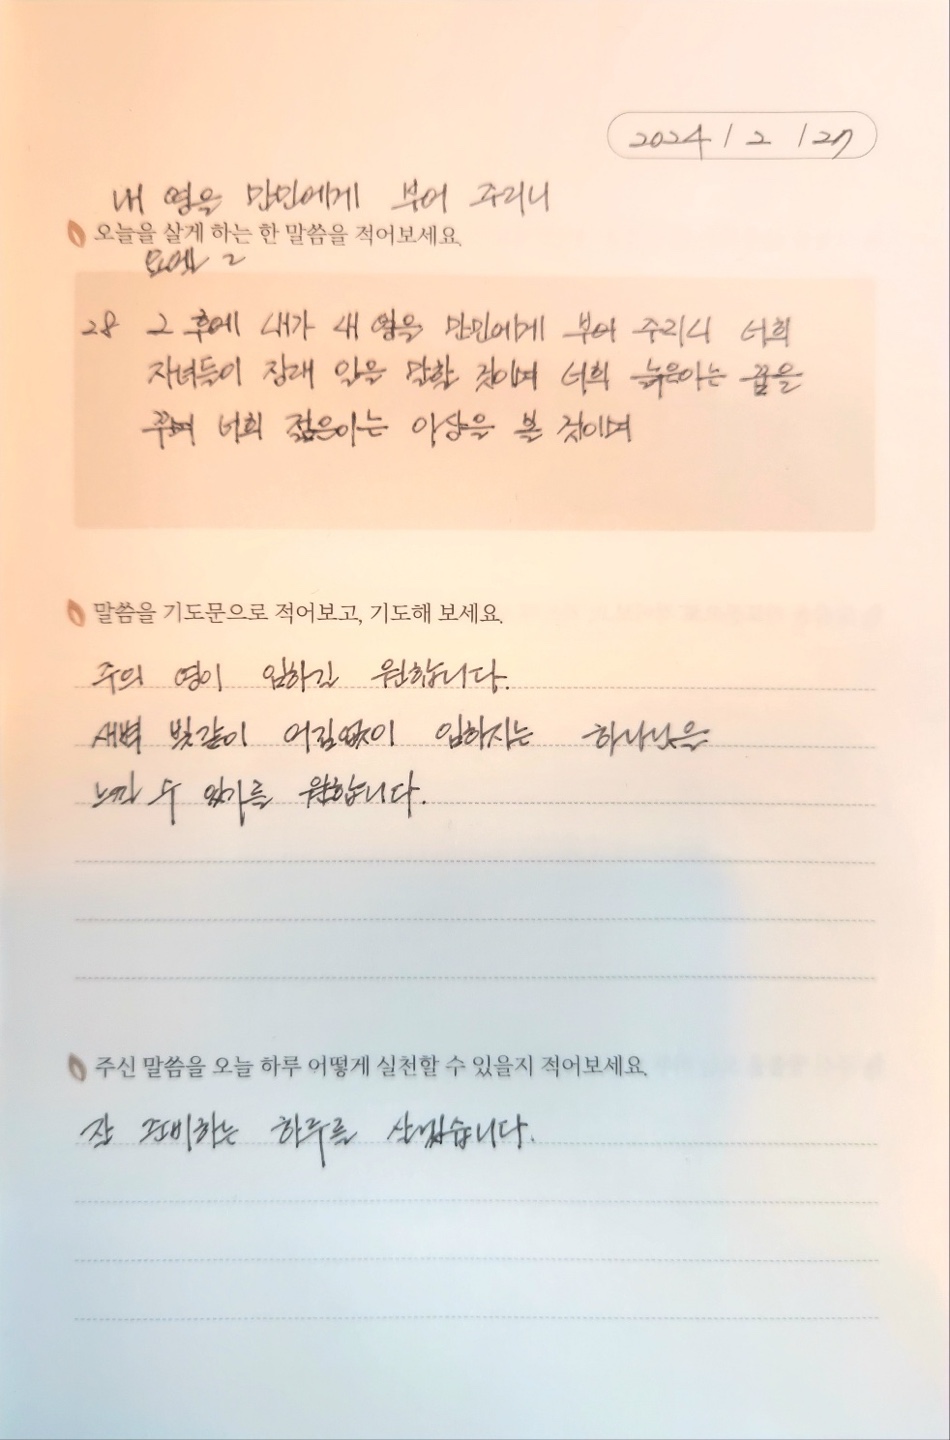 2024 / 2 / 27
내 영을 만민에게 부어 주리니
오늘을 살게 하는 한 말씀을 적어보세요.
요엘 2
28 그 후에 내가 내 영을 만민에게 부어 주리니 너희
자녀들이 장래 일을 말할 것이며 너희 늙은이는 꿈을
꾸며 너희 젊은이는 이상을 볼 것이며
말씀을 기도문으로 적어보고, 기도해 보세요.
주의 영이 임하길 원합니다.
새벽 빛같이 어김없이 임하지는 하나님을
느낄 수 있기를 원합니다.
주신 말씀을 오늘 하루 어떻게 실천할 수 있을지 적어보세요.
잘 준비하는 하루를 살겠습니다.